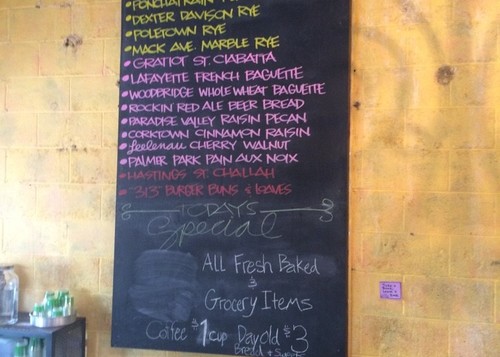 PONCHATRAIN
DEXTER DAVISON RYE
POLETOWN RYE
MACK AVE. MARBLE RYE
GRATIOT ST. CIABATTA
LAFAYETTE FRENCH BAGUETTE
WOODBRIDGE WHOLE WHEAT BAGUETTE
ROCKIN RED ALE BEER BREAD
PARADISE VALLEY RAISIN PECAN
CORKTOWN CINNAMON RAISIN
Leelenau CHERRY WALNUT
PALMER PARK PAIN AUX NOIX
HASTINGS ST. CHALLAH
"313" BURGER BUNS & LOAVES
TODAYS
Special
ALL Fresh Baked
&
Grocery Items
Coffee $1 cup Day old $3
Bread &